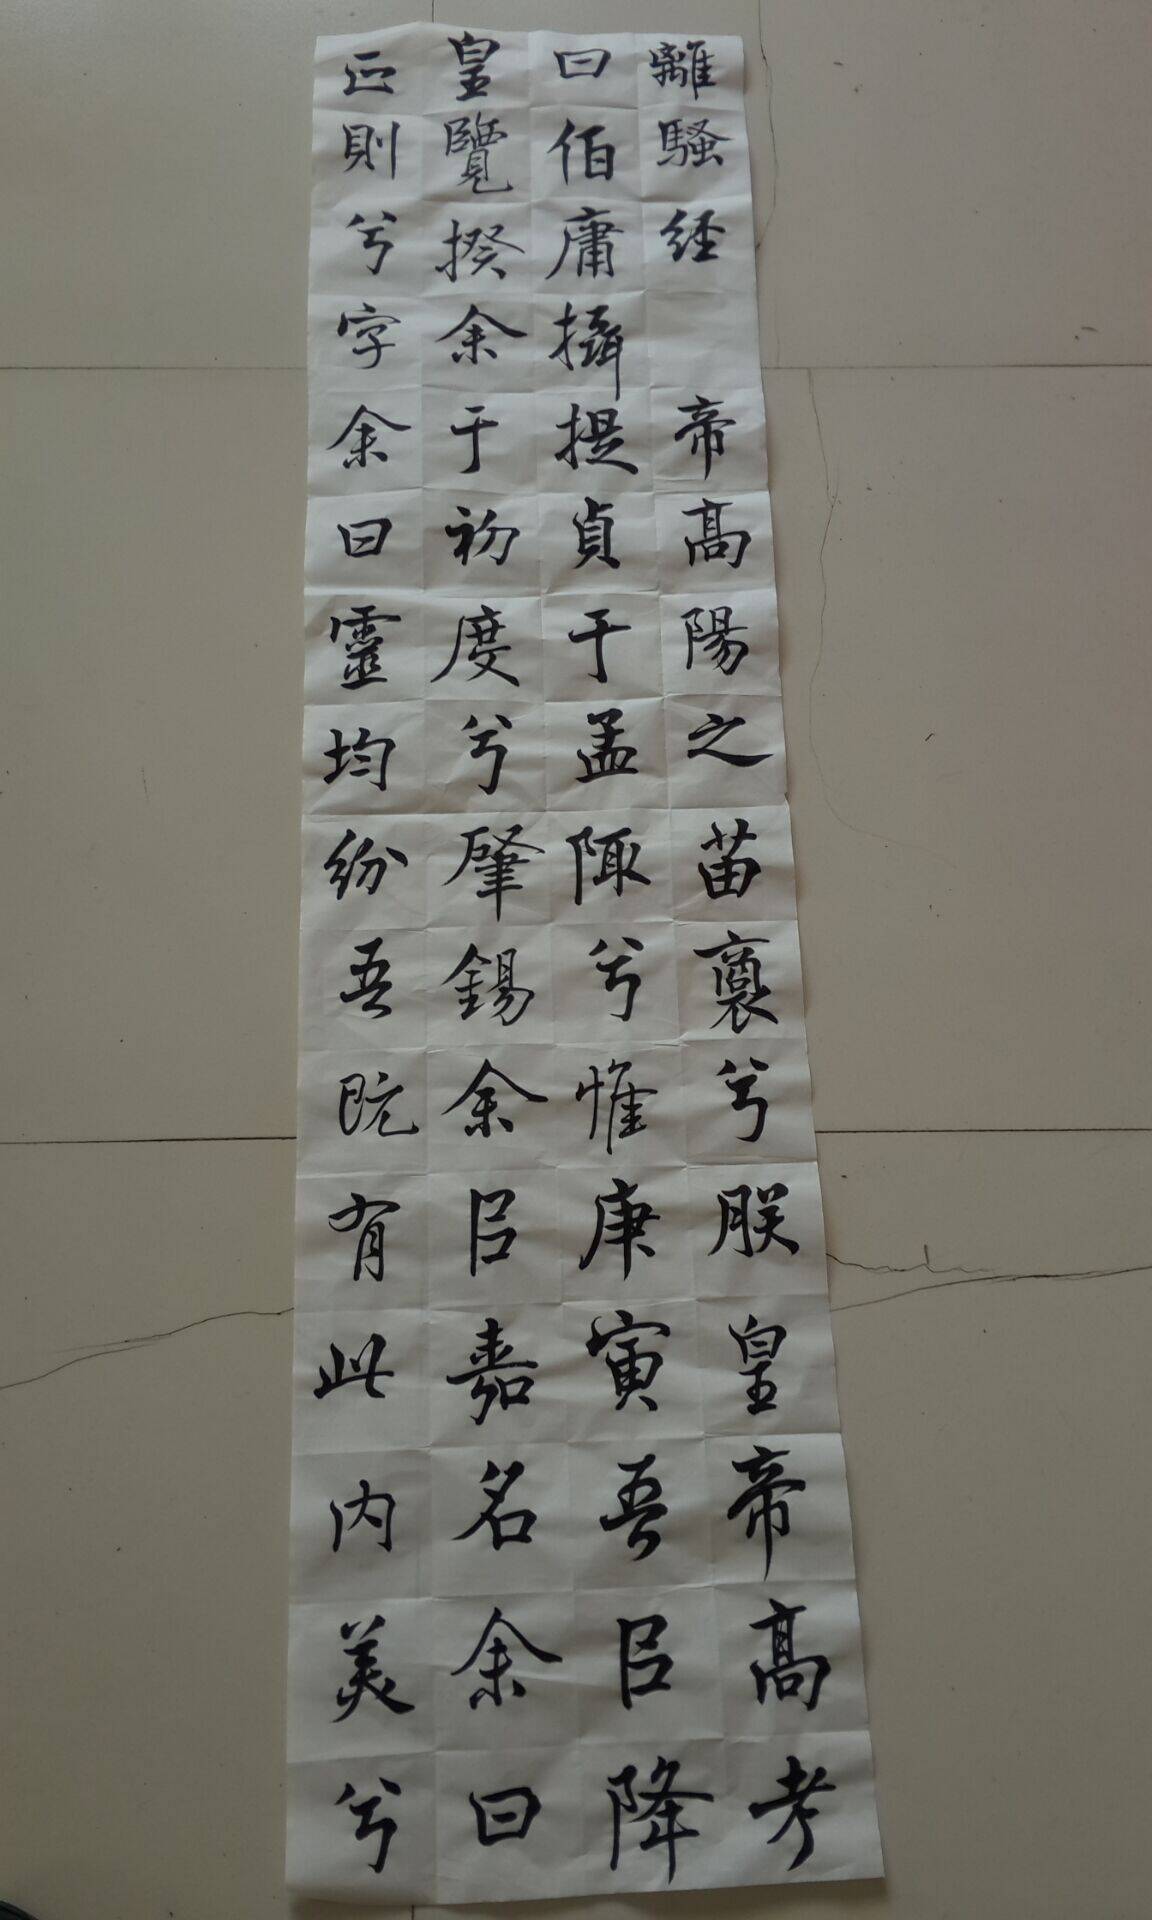 離騷經 帝高陽之苗裔兮朕皇帝高考
曰伯庸攝提貞于孟陬兮惟庚寅吾㠯降
皇覽揆余于初度兮肇錫余㠯嘉名余曰
正則兮字余曰靈均紛吾既有此内美兮